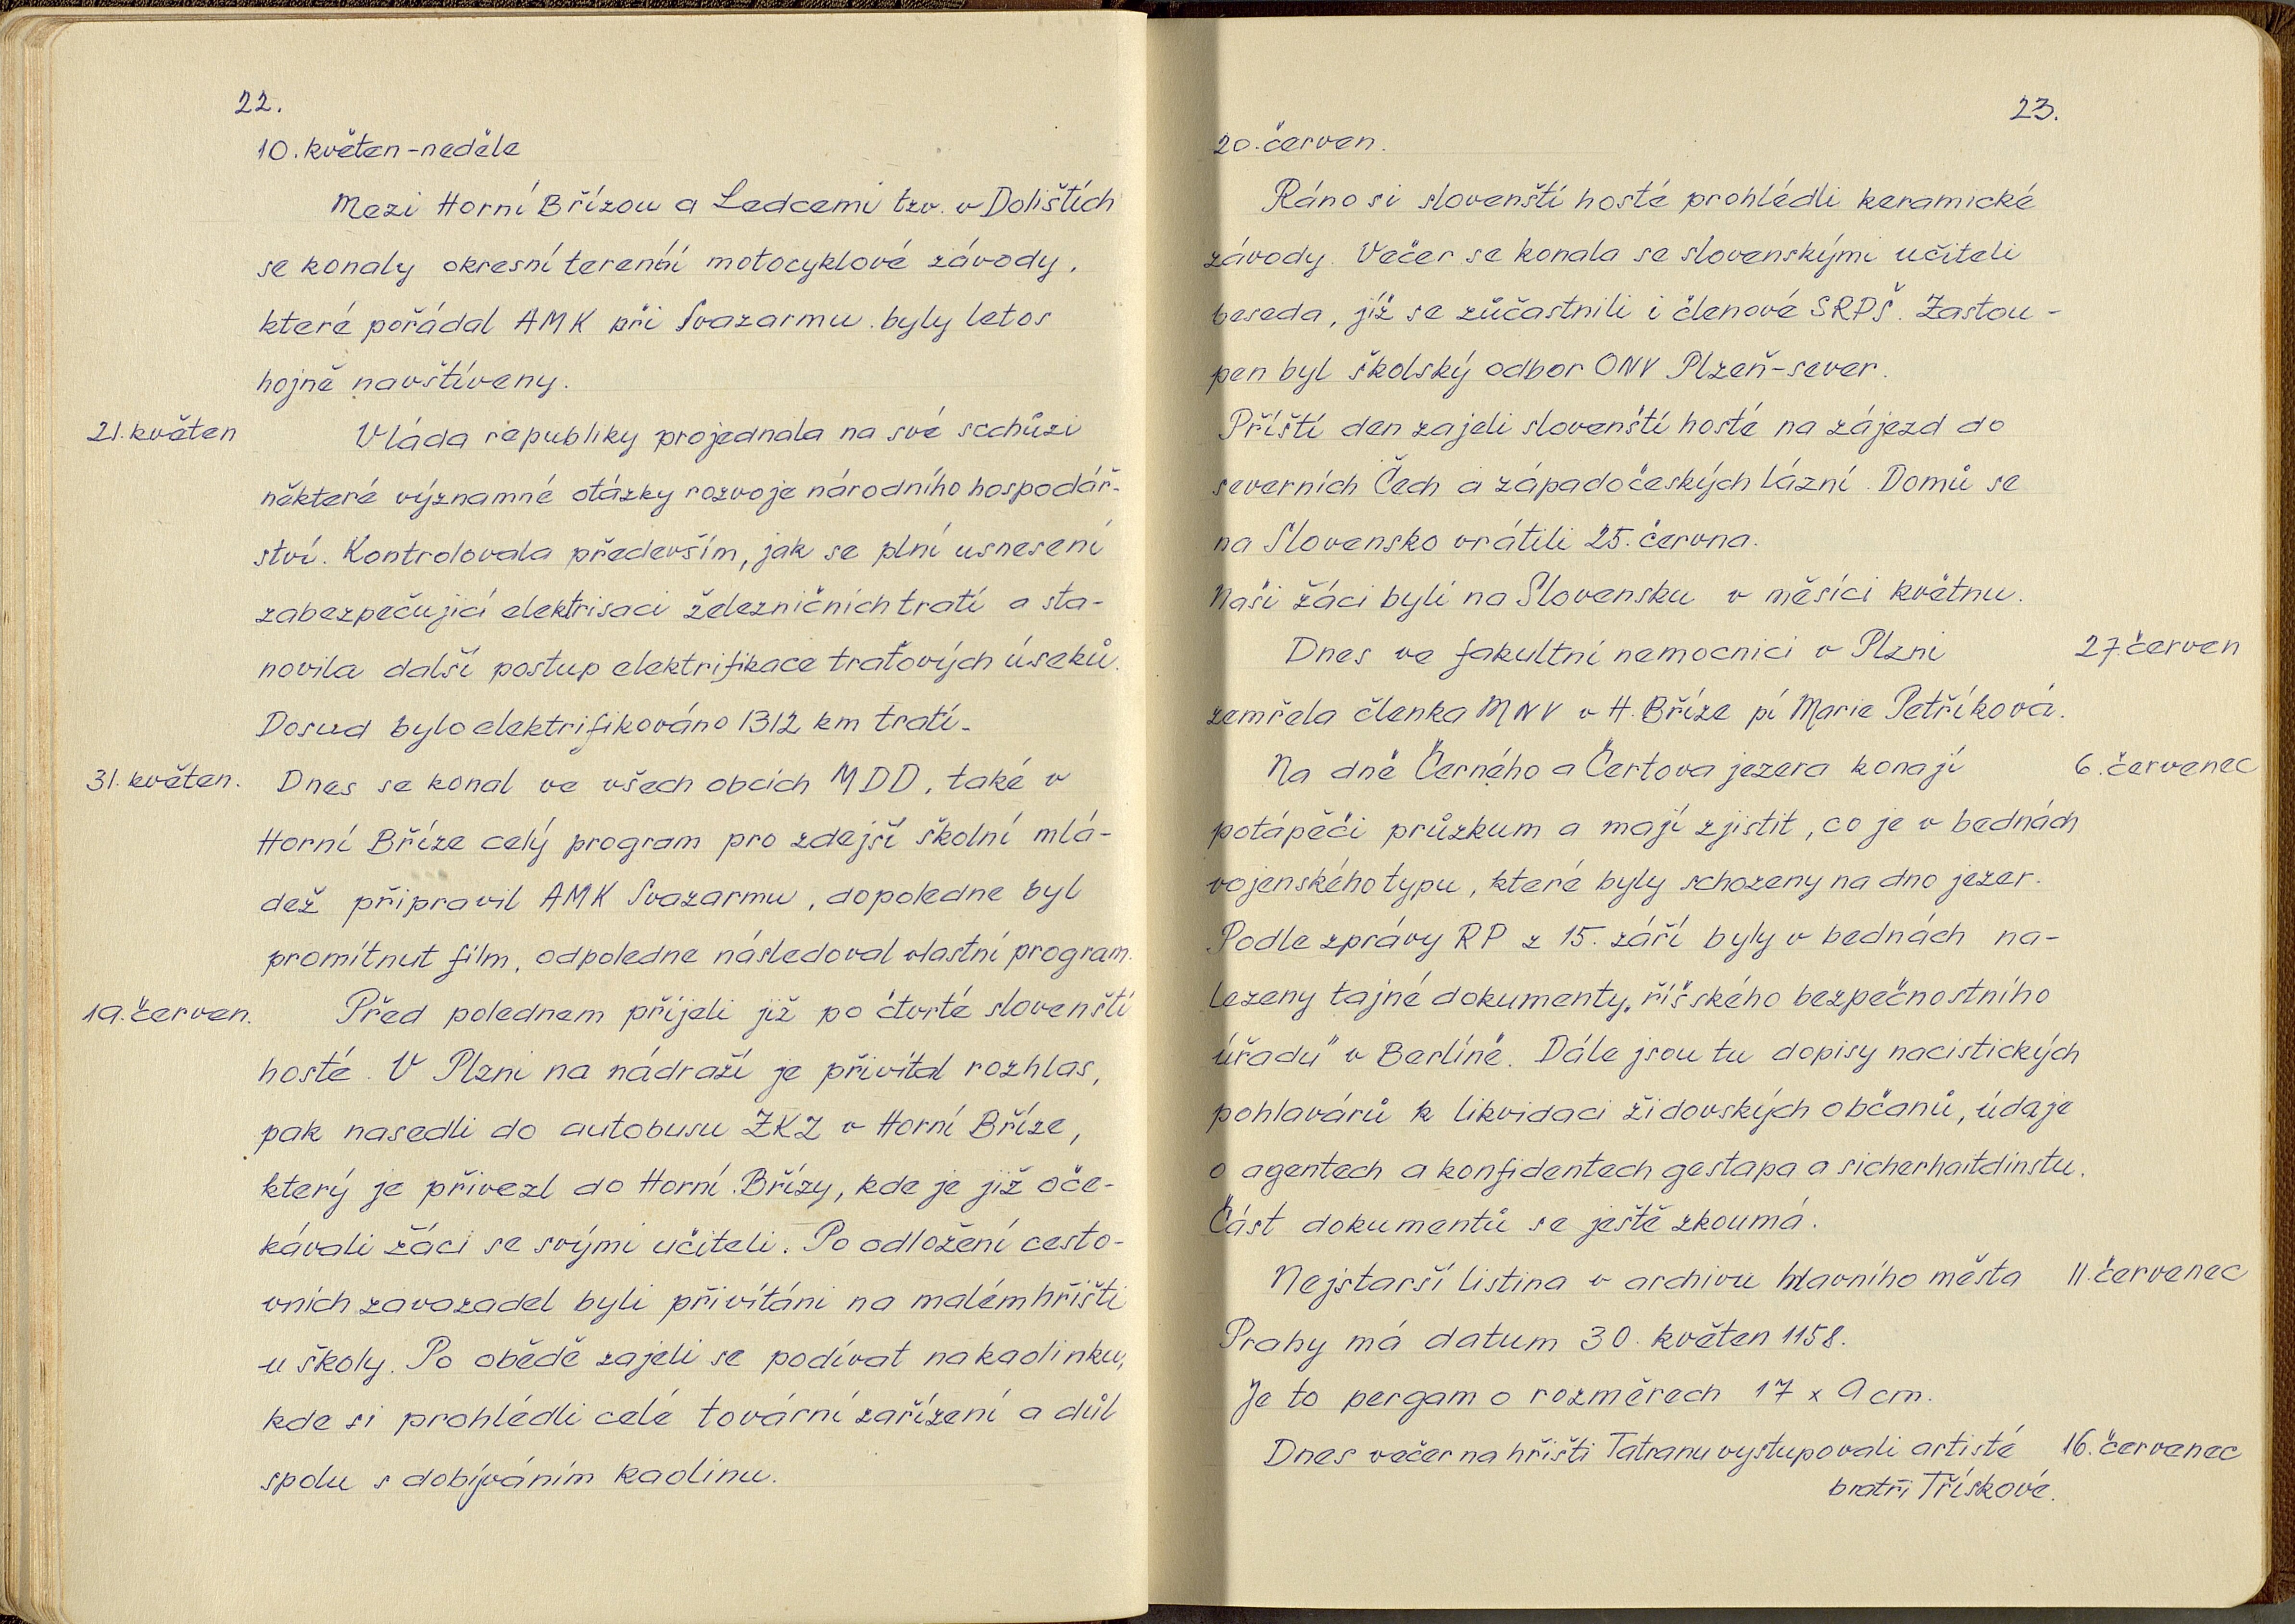 22.
10. květen - neděle
Mezi Horní Břízou a Ledcemi tzv. v Dolištích
se konaly okresní terenní motocyklové závody,
které pořádal AMK při Svazarmu. byly letos
hojně navštíveny.
21. květen Vláda republiky projednala na své scchůzi
některé významné otázky rozvoje národního hospodář-
ství. Kontrolovala především, jak se plní usnesení
zabezpečující elektrisaci železničních tratí a sta-
novila další postup elektrifikace traťových úseků.
Dosud bylo elektrifikováno 1312 km tratí.
31. květen. Dnes se konal ve všech obcích MDD, také v
Horní Bříze celý program pro zdejší školní mlá-
dež připravil AMK Svazarmu, dopoledne byl
promítnut film, odpoledne následoval vlastní program.
19. červen. Před polednem přijeli již po čtvrté slovenští
hosté. V Plzni na nádraží je přivítal rozhlas,
pak nasedli do autobusu ZKZ v Horní Bříze,
který je přivezl do Horní Břízy, kde je již oče-
kávali žáci se svými učiteli. Po odložení cesto-
vních zavazadel byli přivítáni na malém hřišti
u školy. Po obědě zajeli se podívat na kaolinku,
kde si prohlédli celé tovární zařízení a důl
spolu s dobýváním kaolinu.
23.
20. červen.
Ráno si slovenští hosté prohlédli keramické
závody. Večer se konala se slovenskými učiteli
beseda, jíž se zůčastnili i členové SRPŠ. Zastou-
pen byl školský odbor ONV Plzeň-sever.
Příští den zajeli slovenští hosté na zájezd do
severních Čech a západočeských lázní. Domů se
na Slovensko vrátili 25. června.
Naši žáci byli na Slovensku v měsíci květnu.
Dnes ve fakultní nemocnici v Plzni 27. červen
zemřela členka MNV v H. Bříze pí Marie Petříková.
Na dně Černého a Čertova jezera konají 6. červenec
potápěči průzkum a mají zjistit, co je v bednách
vojenského typu, které byly schozeny na dno jezer.
Podle zprávy RP z 15. září byly v bednách na-
lezeny tajné dokumenty „říšského bezpečnostního
úřadu" v Berlíně. Dále jsou tu dopisy nacistických
pohlavárů k likvidaci židovských občanů, údaje
o agentech a konfidentech gestapa a sicherhaitdinstu.
Část dokumentů se ještě zkoumá.
Nejstarší listina v archivu hlavního města 11. červenec
Prahy má datum 30. květen 1158.
Je to pergam o rozměrech 17 x 9 cm.
Dnes večer na hřišti Tatranu vystupovali artisté 16. červenec
bratři Třískové.